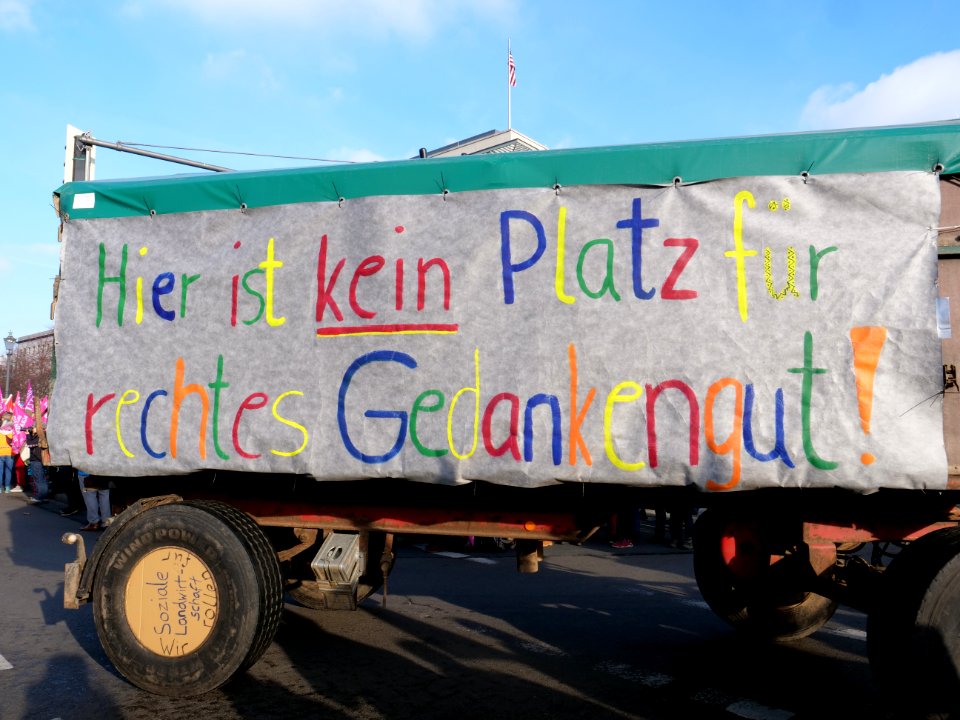 Hier ist kein Platz für
rechtes Gedankengut!
WINDPOWER
Soziale
Landwirt-
schaft
Wir
rollen